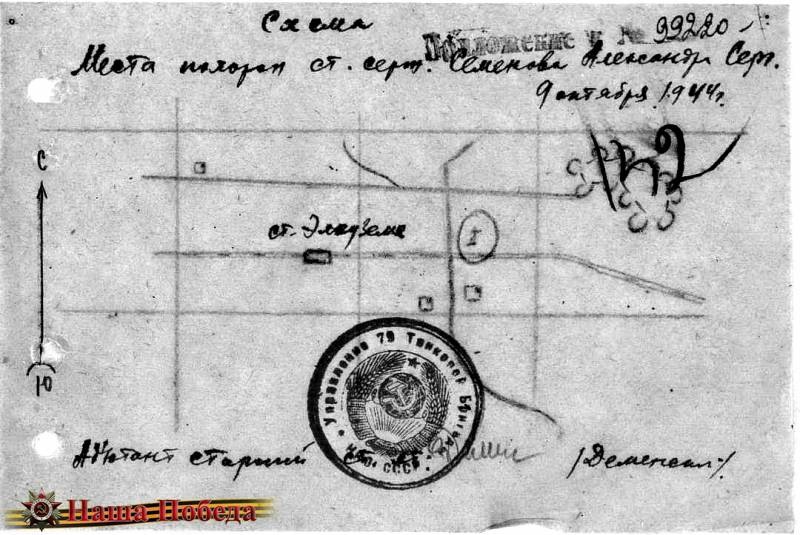 Схема
Приложение к № 99220
Места похорон ст. серж. Семенова Александр Серг.
9 октября 1944 г.
С
ст. Элкуземе
I
Ю
Управление 79 Танковой Бригады
СССР
Адъютант старший ст. лт. /Деменский/
Наша Победа